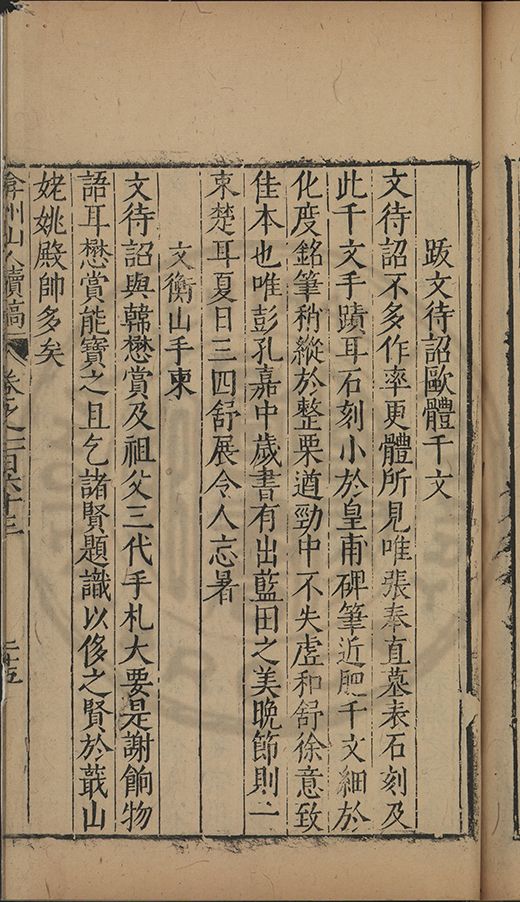 跋文待詔歐體千文
文待詔不多作率更體所見唯張奉直墓表石刻及
此千文手蹟耳石刻小於皇甫碑筆近肥千文細於
化度銘筆稍縱於整栗遒勁中不失虛和舒徐意致
佳本也唯彭孔嘉中歲書有出藍田之美晚節則一
束楚耳夏日三四舒展令人忘暑
文衡山手柬
文待詔與韓懋賞及祖父三代手札大要是謝餉物
語耳懋賞能寶之且乞諸賢題識以侈之賢於蕺山
姥姚殿帥多矣
弇州山人續稿 卷之一百六十三 二十五